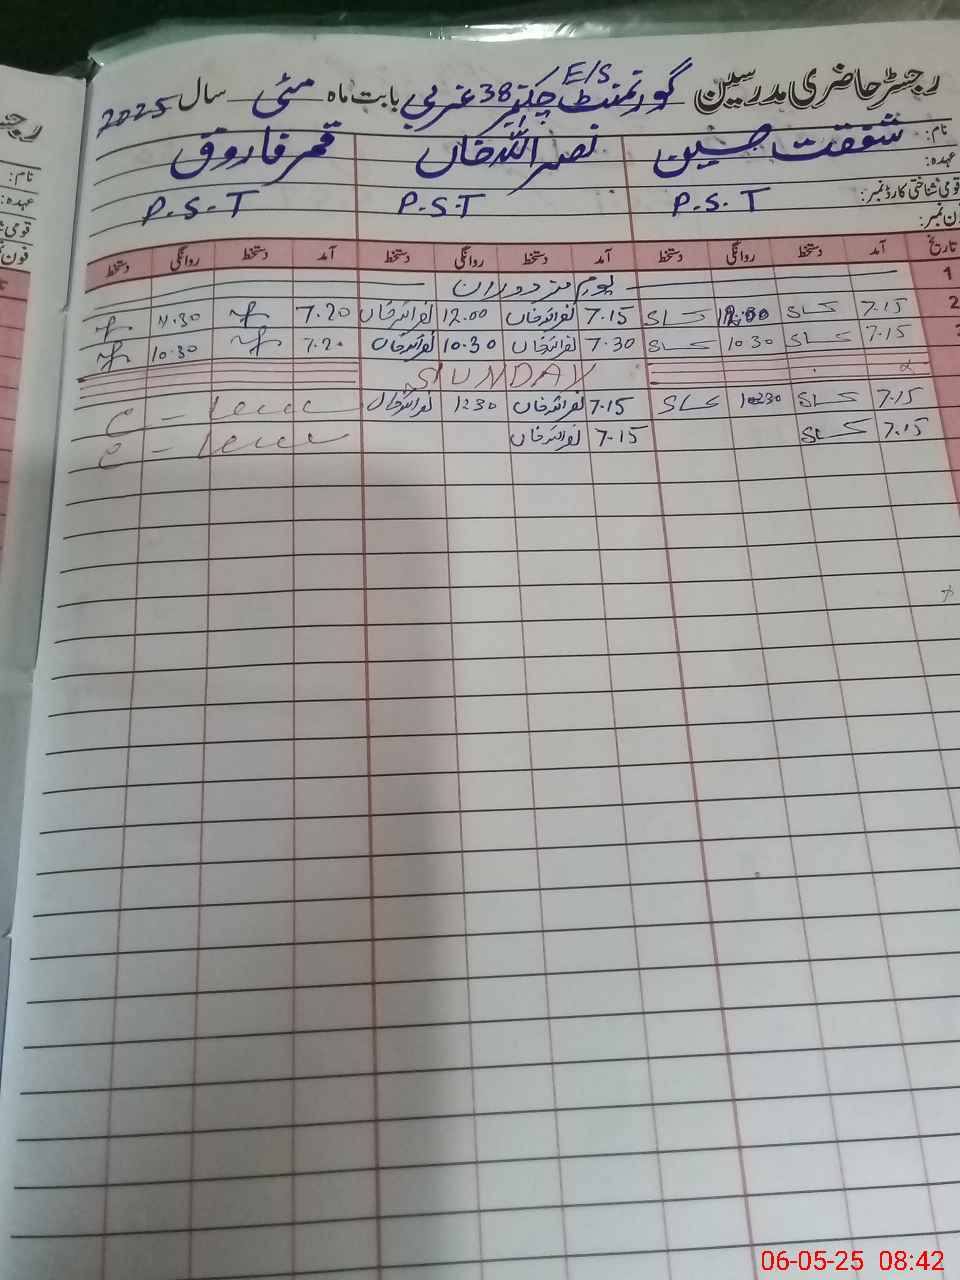 رجسٹر حاضری مدرسین گورنمنٹ E/S چک نمبر 38 غربی بابت ماہ مئی سال 2025
نام: شفقت حسین نصر اللہ خاں قمر فاروق
عہدہ:
قومی شناختی کارڈ نمبر: P.S.T P.S.T P.S.T
ون نمبر:
تاریخ آمد دستخط روانگی دستخط آمد دستخط روانگی دستخط آمد دستخط روانگی دستخط
1 یوم مزدوران
2 7.15 7.15 نصراللہ خاں 12.00 نصراللہ خاں 7.20 11.30
3 7.15 10 30 7.30 نصراللہ خاں 10.30 نصراللہ خاں 7.20 10.30
SUNDAY
7.15 7.15 نصراللہ خاں 1230 نصراللہ خاں
7.15 7.15 نصراللہ خاں
رجـ
نام:
عہدہ:
قومی ش
فون ن
06-05-25 08:42